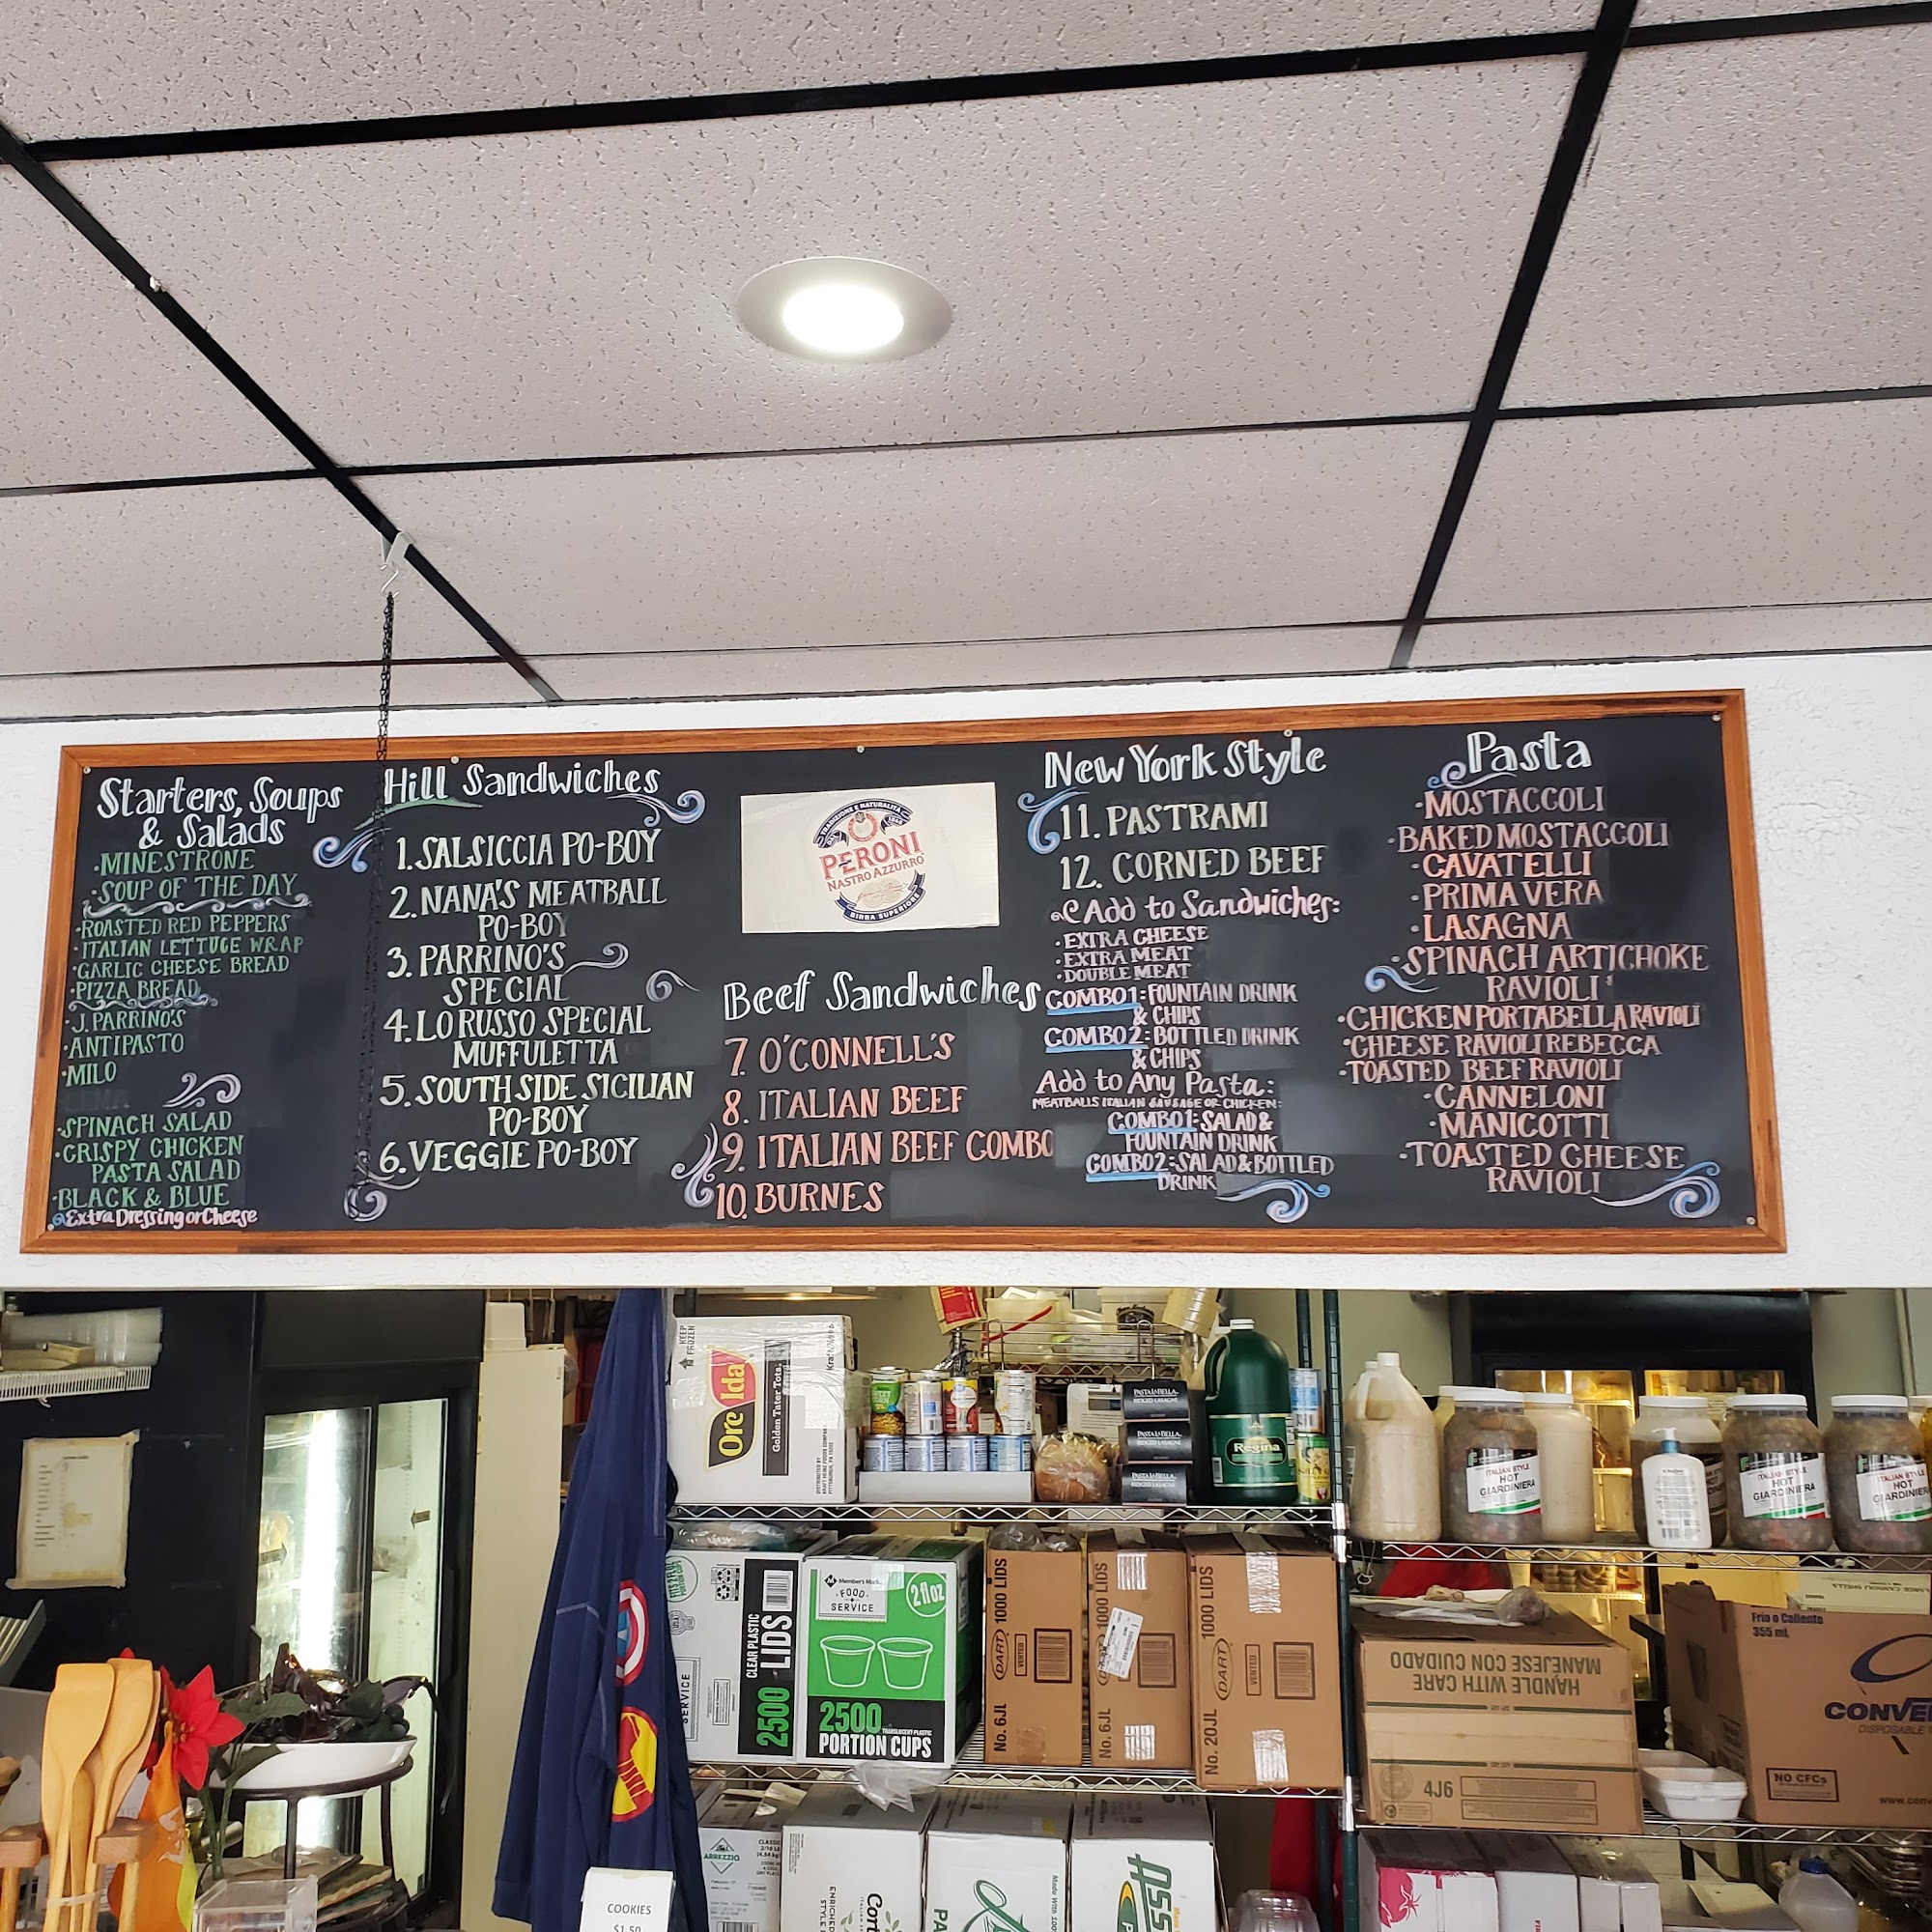 Starters, Soups
& Salads
·MINESTRONE
·SOUP OF THE DAY
·ROASTED RED PEPPERS
·ITALIAN LETTUCE WRAP
·GARLIC CHEESE BREAD
·PIZZA BREAD
·J. PARRINO'S
·ANTIPASTO
·MILO
·SPINACH SALAD
·CRISPY CHICKEN
PASTA SALAD
·BLACK & BLUE
Extra Dressing or Cheese
Hill Sandwiches
1. SALSICCIA PO-BOY
2. NANA'S MEATBALL
PO-BOY
3. PARRINO'S
SPECIAL
4. LORUSSO SPECIAL
MUFFULETTA
5. SOUTH SIDE SICILIAN
PO-BOY
6. VEGGIE PO-BOY
TRADIZIONE E NATURALITA
PERONI
NASTRO AZZURRO
BIRRA SUPERIORE
Beef Sandwiches
7. O'CONNELL'S
8. ITALIAN BEEF
9. ITALIAN BEEF COMBO
10. BURNES
New York Style
11. PASTRAMI
12. CORNED BEEF
Add to Sandwiches:
·EXTRA CHEESE
·EXTRA MEAT
·DOUBLE MEAT
COMBO1: FOUNTAIN DRINK
& CHIPS
COMBO2: BOTTLED DRINK
& CHIPS
Add to Any Pasta:
MEATBALLS ITALIAN SAUSAGE OR CHICKEN:
COMBO1: SALAD &
FOUNTAIN DRINK
COMBO2: SALAD & BOTTLED
DRINK
Pasta
·MOSTACCOLI
·BAKED MOSTACCOLI
·CAVATELLI
·PRIMAVERA
·LASAGNA
·SPINACH ARTICHOKE
RAVIOLI
·CHICKEN PORTABELLA RAVIOLI
·CHEESE RAVIOLI REBECCA
·TOASTED BEEF RAVIOLI
·CANNELONI
·MANICOTTI
·TOASTED CHEESE
RAVIOLI
KEEP
FROZEN
Ore Ida
Golden Tater Tots.
PASTA LABELLA
RIDGED LASAGNE
PASTA LABELLA
RIDGED LASAGNE
PASTA LABELLA
RIDGED LASAGNE
Regina
ITALIAN STYLE
HOT
GIARDINIERA
ITALIAN STYLE
HOT
GIARDINIERA
ITALIAN STYLE
HOT
GIARDINIERA
SERVICE
CLEAR PLASTIC
LIDS
2500
Member's Mark
FOOD
SERVICE
2 fl oz
2500
TRANSLUCENT PLASTIC
PORTION CUPS
DART 1000 LIDS
VENTED
No. 6JL
1000 LIDS
No. 6JL
DART 1000 LIDS
VENTED
No. 20JL
HANDLE WITH CARE
MANEJESE CON CUIDADO
4J6
Frio o Caliente
355 mL
CONVE
DISPOSABLE
NO CFCs
www.conv
ARREZZIO
COOKIES
$1.50